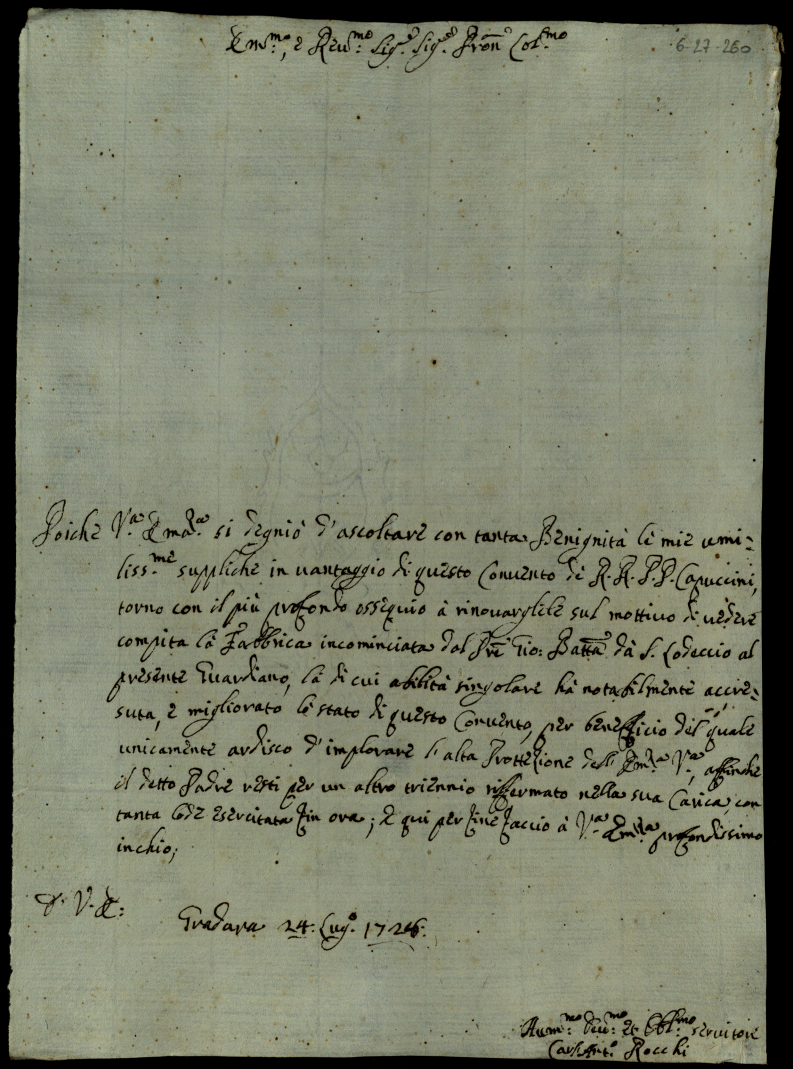 Em.mo, e Rev.mo Sig.r Sig.r Pron Col.mo
6-27-260
Poiche V.a Emza si degniò d'ascoltare con tanta Benignità le mie umi=
liss.me suppliche in vantaggio di questo Convento de R.R.P.P. Capuccini,
torno con il più profondo ossequio à rinovarglile sul mottivo di vedere
compita la Fabbrica incominciata dal Pre Gio: Batta dà S. Lodeccio al
presente Guardiano, la di cui abilità singolare hà notabilmente accre=
suta, e migliorato lo stato di questo Convento, per benefficio del quale
unicamente ardisco d'implorare l'alta Prottezione dell' Emza Va, affinche
il detto Padre resti per un altro triennio rifermato nella sua Carica, con
tanta lode esercitata fin ora; E qui per fine faccio à V.a Emza profondissimo
inchio;
D. V. E:
Gradara 24: Lug.o 1726:
Hum.mo Dev.mo et Obl.mo servitore
Carl'Ant.o Rocchi